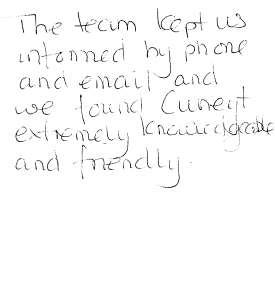 The team kept us
informed by phone
and email and
we found Cuneyt
extremely knowledgeable
and friendly.